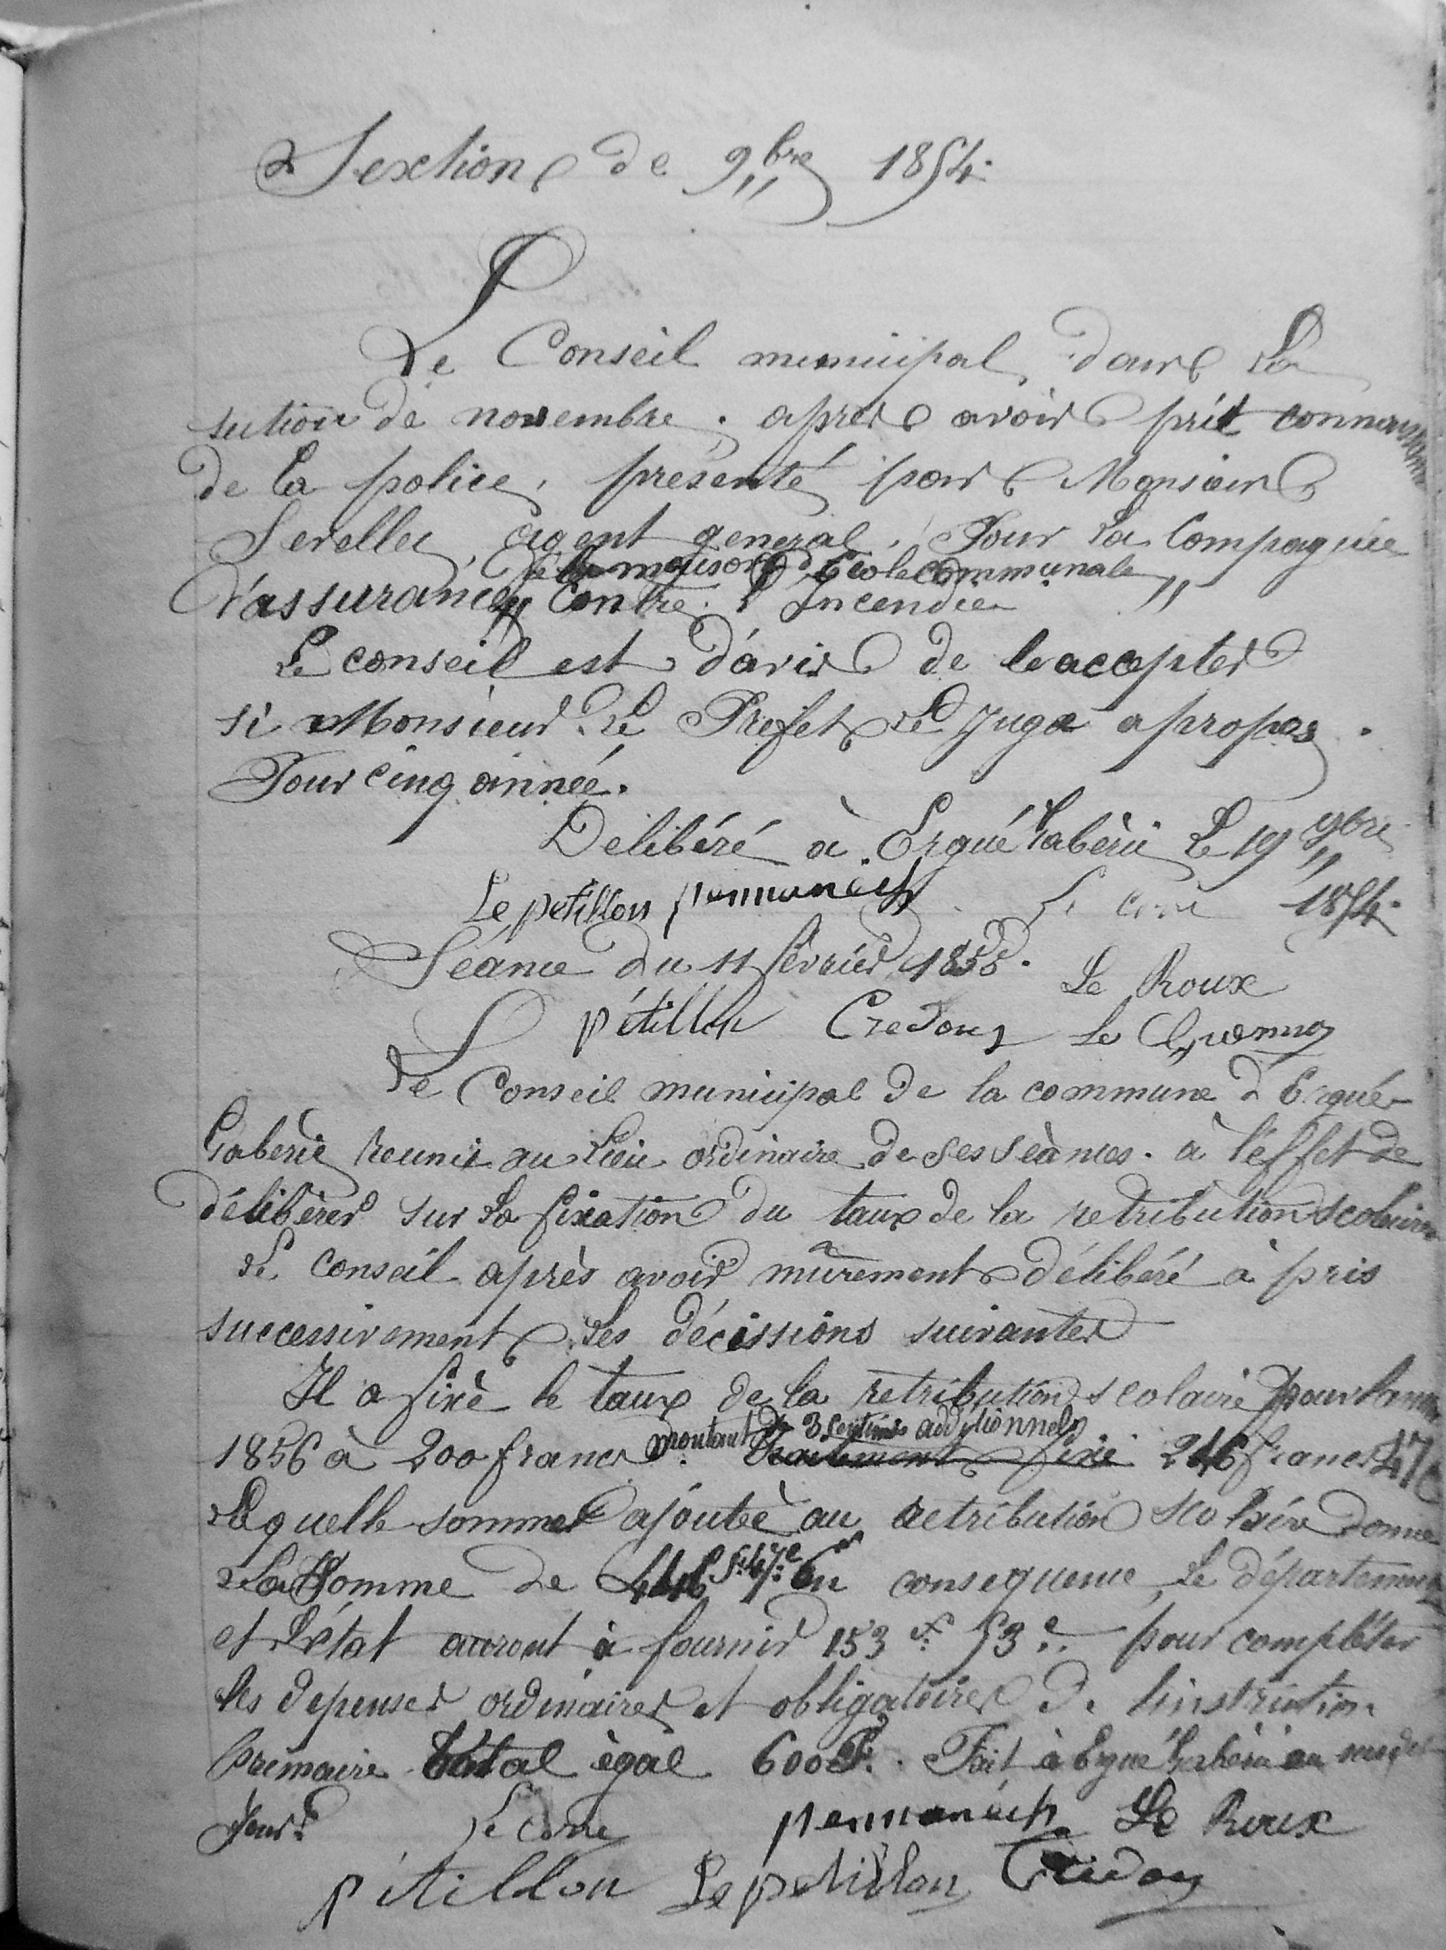 Sextion de 9bre 1854.
Le Conseil municipal dans la
sution de novembre. après avoir prit connaissance
de la police, présenté par Monsieur
agent general, Pour la Compagnie
de la maison d'Ecole communale
d'assurance Contre l'Incendie
Le conseil est d'avis de le accepter
si Monsieur Le Prefet le Juge apropos.
Pour cinq année.
Delibéré à Ergué Gabéric Le 19 9bre
Le petillon pennanech 1854.
Séance du 11 février 1855. Le Roux
pétillon Credou Le Guennou
Le Conseil municipal de la commune d'Ergué
Gabéric reunit au Lieu ordinaire de ses séances. à l'effet de
délibérer sur La fixation du taux de la retribution scolaire
Le conseil après avoir mûrement délibéré à pris
successivement Les décissions suivantes
Il a fixé le taux de la retribution scolaire pour l'année
montant de 3 centimes additionnels
1856 à 200 francs. Traitement fixé 246 francs 47c
Laquelle somme ajoutée au retribution scolaire donne
La Somme de 446 f. 47c. En consequence Le département
et L'état auront à fournir 153 f. 53c. pour compléter
les depenses ordinaires et obligatoires de l'instruction
primaire total égal 600 F. Fait à Ergué Gabéric en
Jour. pennanech Le Roux
pétillon Le petillon Credou